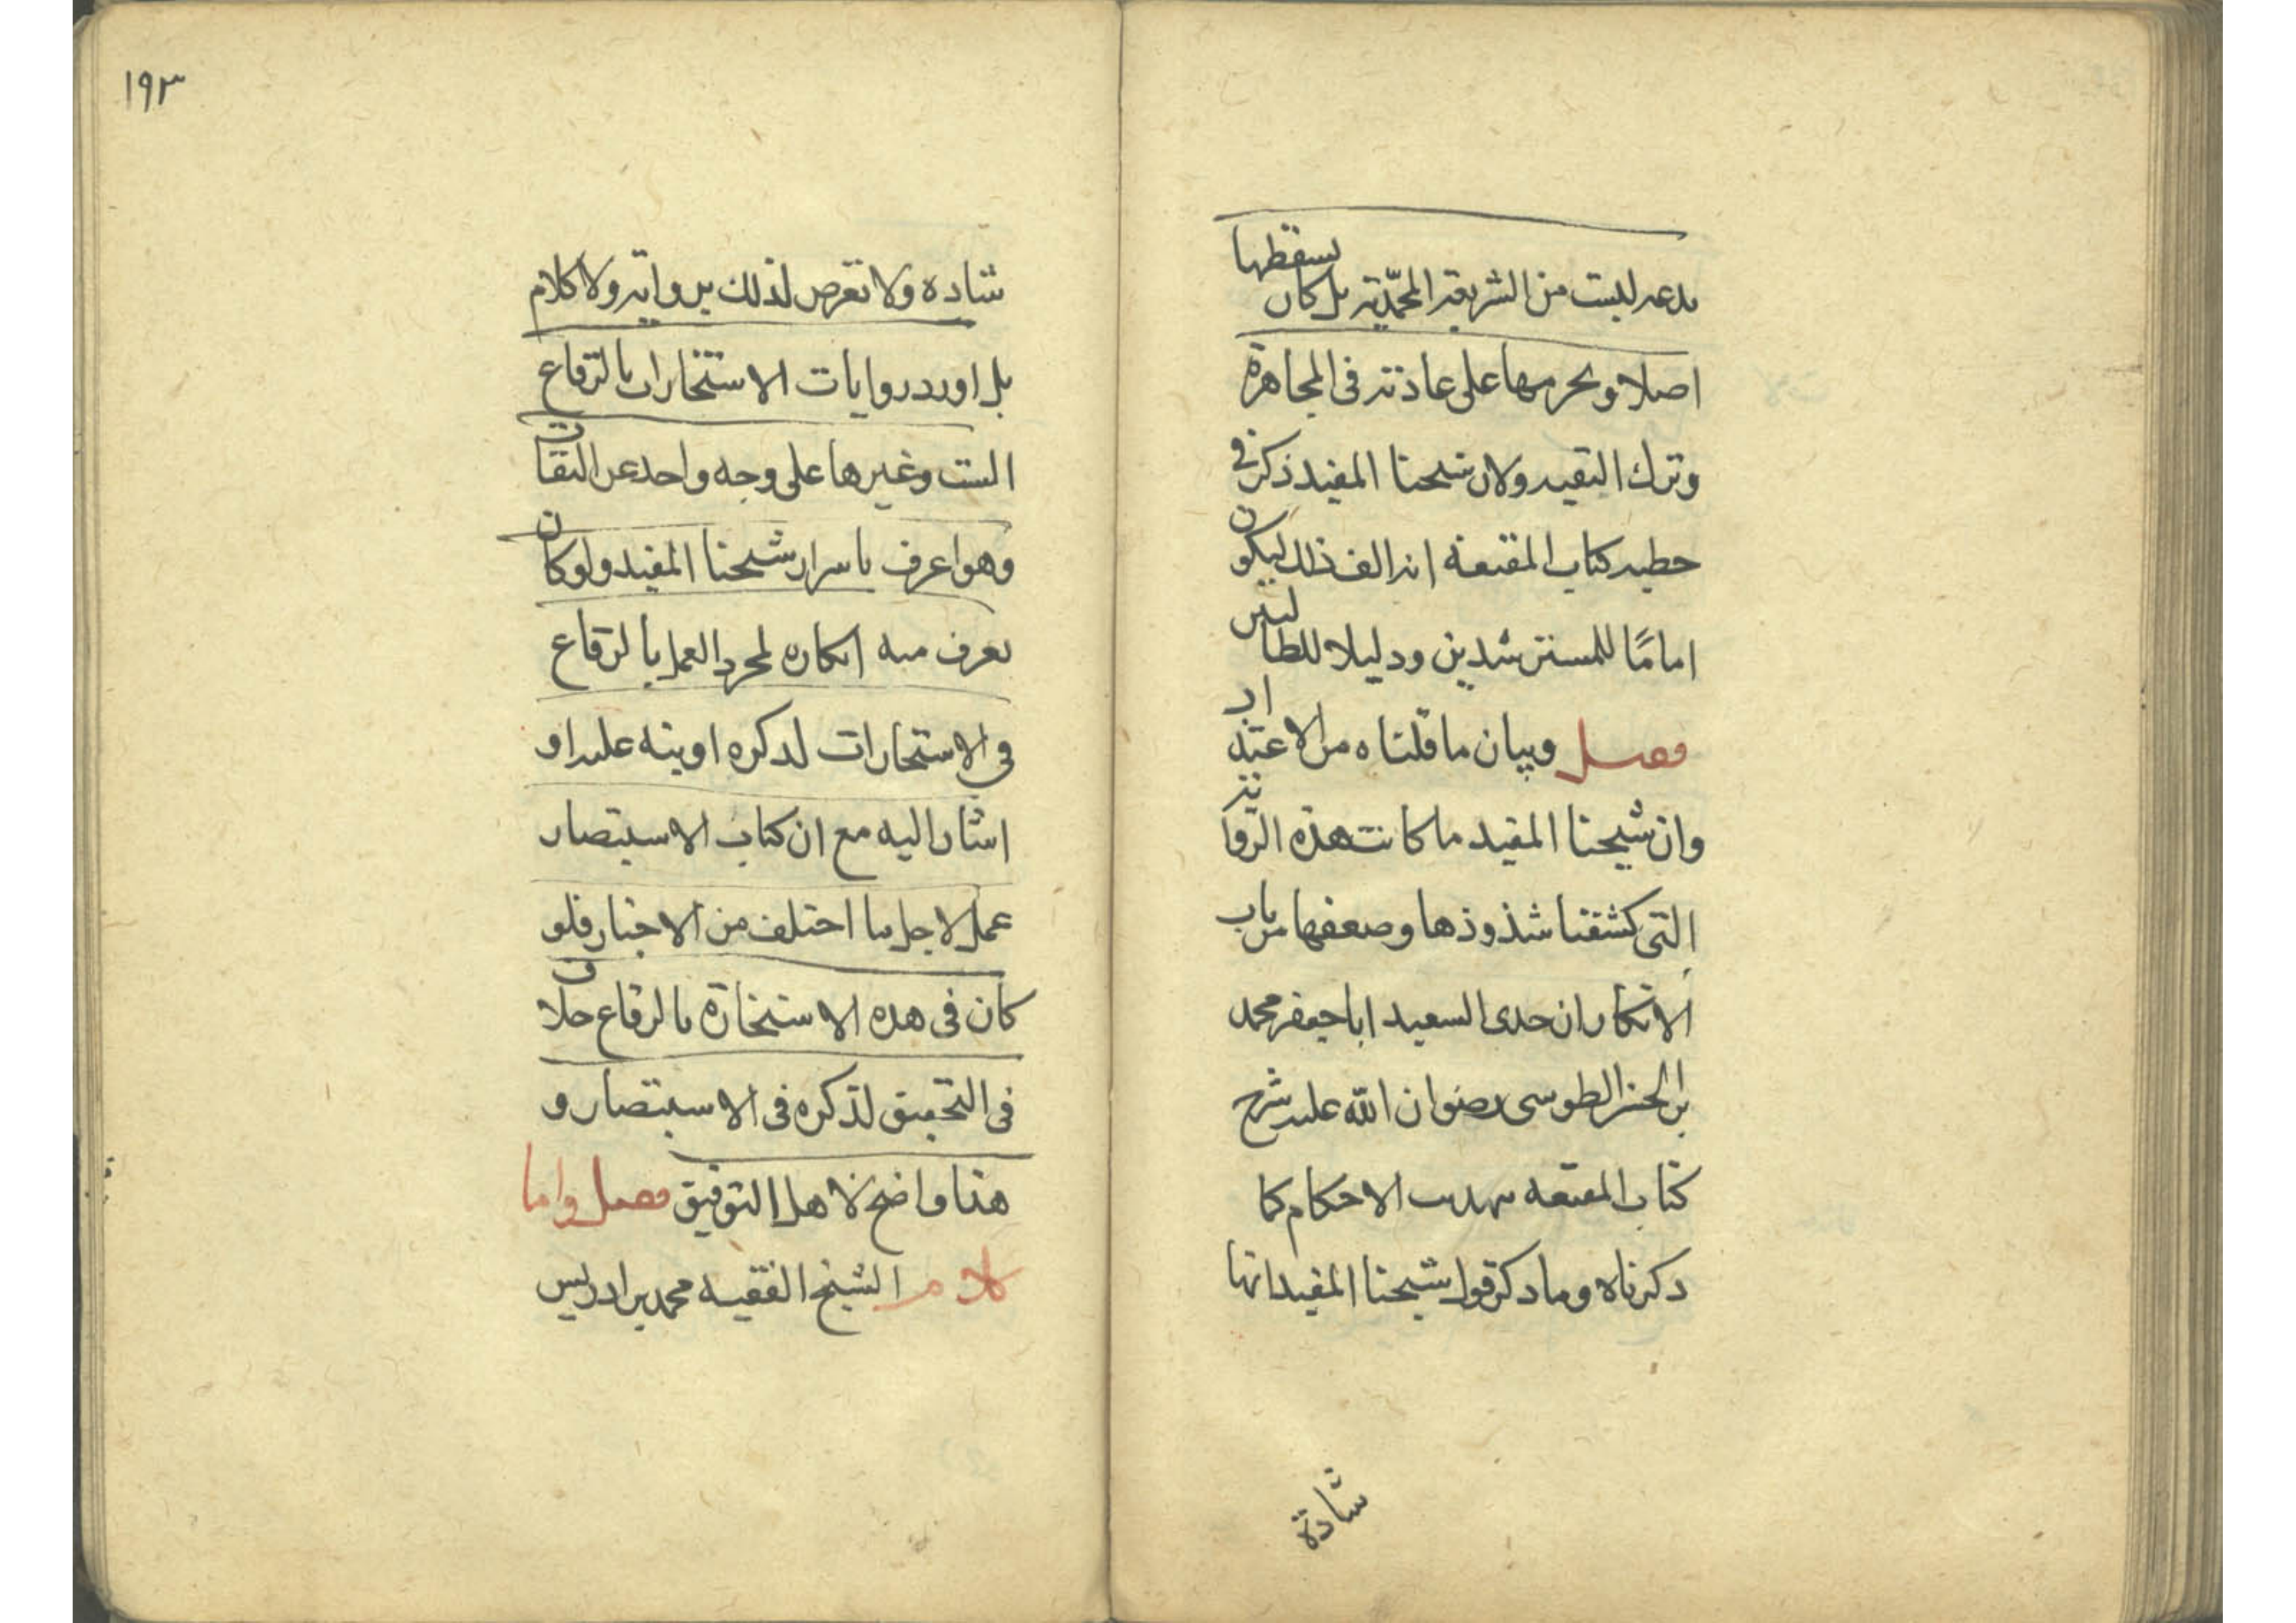 بدعه ليست من الشريعة المحمدّية بل كان يسقطها
اصلا ويحرمها على عادته فى المجاهرة
وترك التقيه ولان شيخنا المفيد ذكر فى
خطبه كتاب المقنعة انه الف ذلك ليكون
امامًا للمسترشدين ودليلا للطالبين
فصل وبيان ما قلناه من الاعتذار
وان شيخنا المفيد ما كانت هذه الرواية
التى كشفنا شذوذها وضعفها من باب
الانكار ان جدى السعيد ابا جعفر محمد
بن الحسن الطوسى رضوان الله عليه شرح
كتاب المقنعه بتهذيب الاحكام كما
ذكرناه وما ذكر قول شيخنا المفيد انها
شاذة
١٩٣
شاذه ولا تعرض لذلك برواية ولا كلام
بل اورد روايات الاستخارات بالرقاع
الست وغيرها على وجه واحد عن الثقات
وهو اعرف باسرار شيخنا المفيد ولو كان
يعرف منه انكاره لمجرد العمل بالرقاع
فى الاستخارات لذكره او ينبه عليه او
اشار اليه مع ان كتاب الاستبصار
عمله لاجل ما اختلف من الاخبار فلو
كان فى هذه الاستخارة بالرقاع خلاف
فى التحقيق لذكره فى الاستبصار و
هذا واضح لاهل التوفيق فصل واما
كلام الشيخ الفقيه محمد بن ادريس